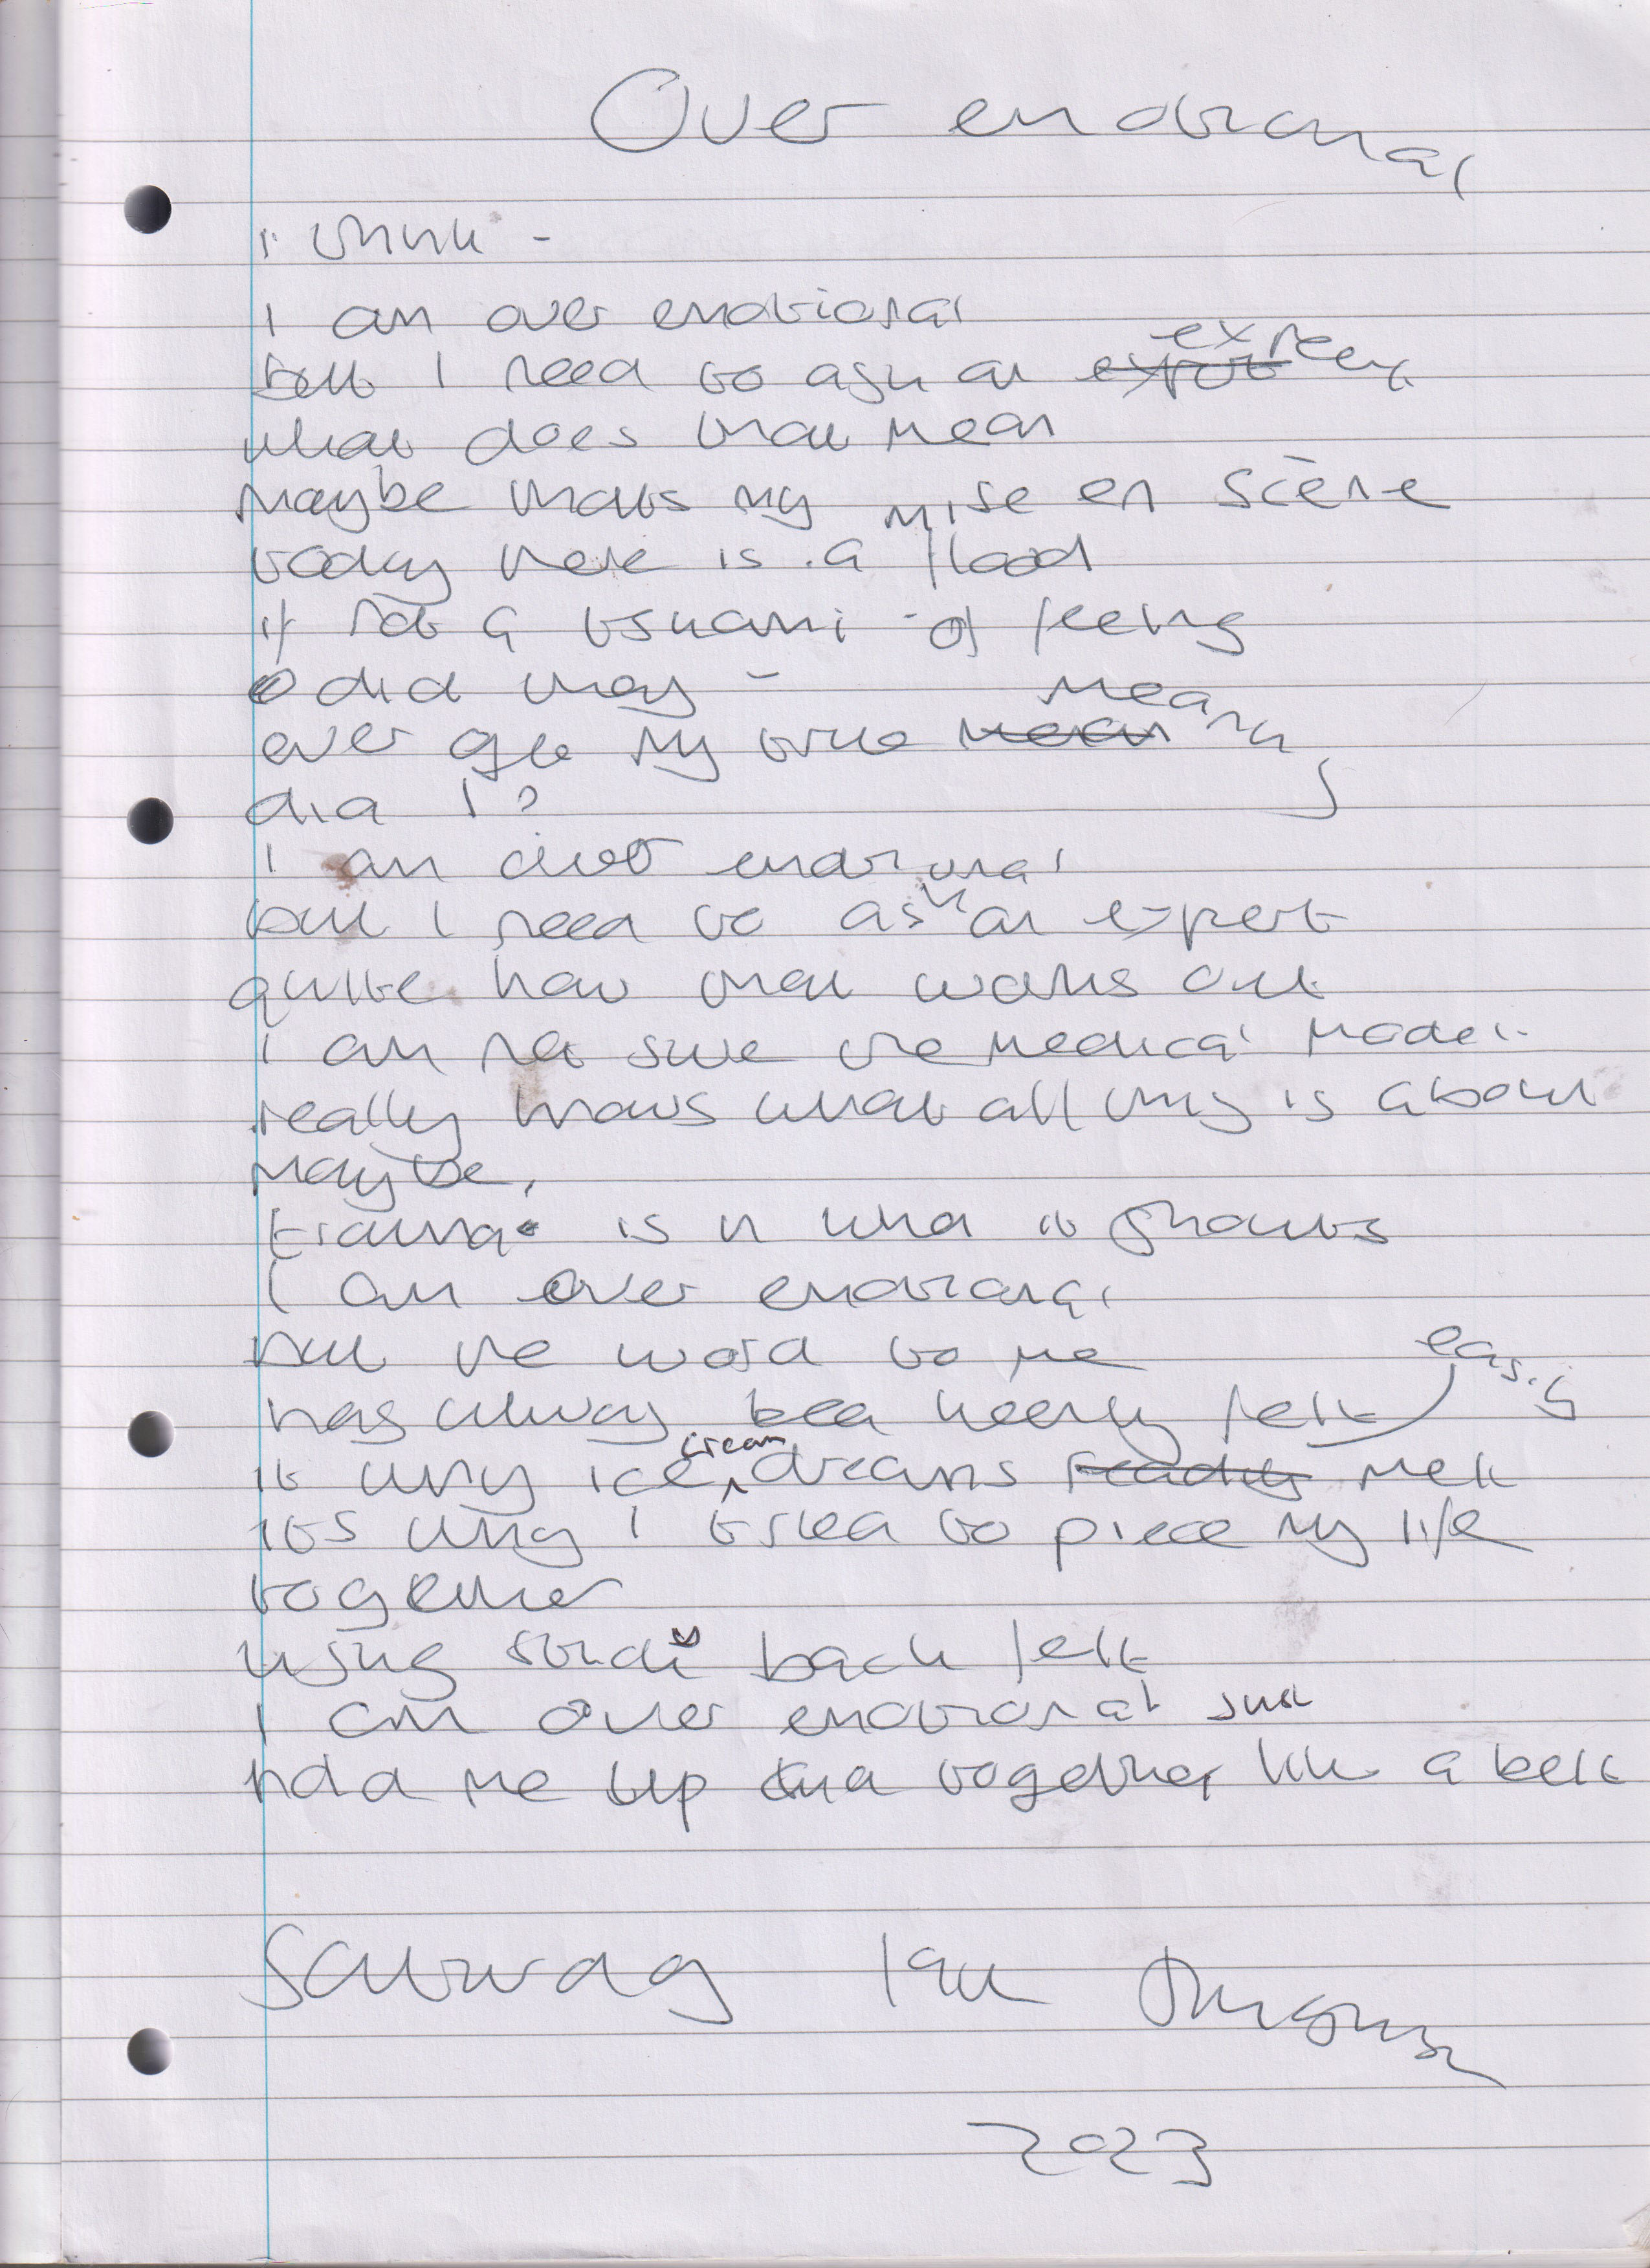 Over emotional
I think -
I am over emotional
but I need to ask an expert expert
what does that mean
maybe thats my mise en scène
today there is a flood
if not a tsunami of feeling
did they -
ever get my true mean meaning
did I?
I am over emotional
but I need to ask an expert
quite how that works out
I am not sure the medical model
really knows what all this is about
maybe,
trauma is in what it shouts
I am over emotional
but the word to me
has always been keenly felt
it why ice cream dreams readily easily melt
its why I tried to piece my life
together
using back felt
I am over emotional just
hold me up and together like a belt
Ian
2023